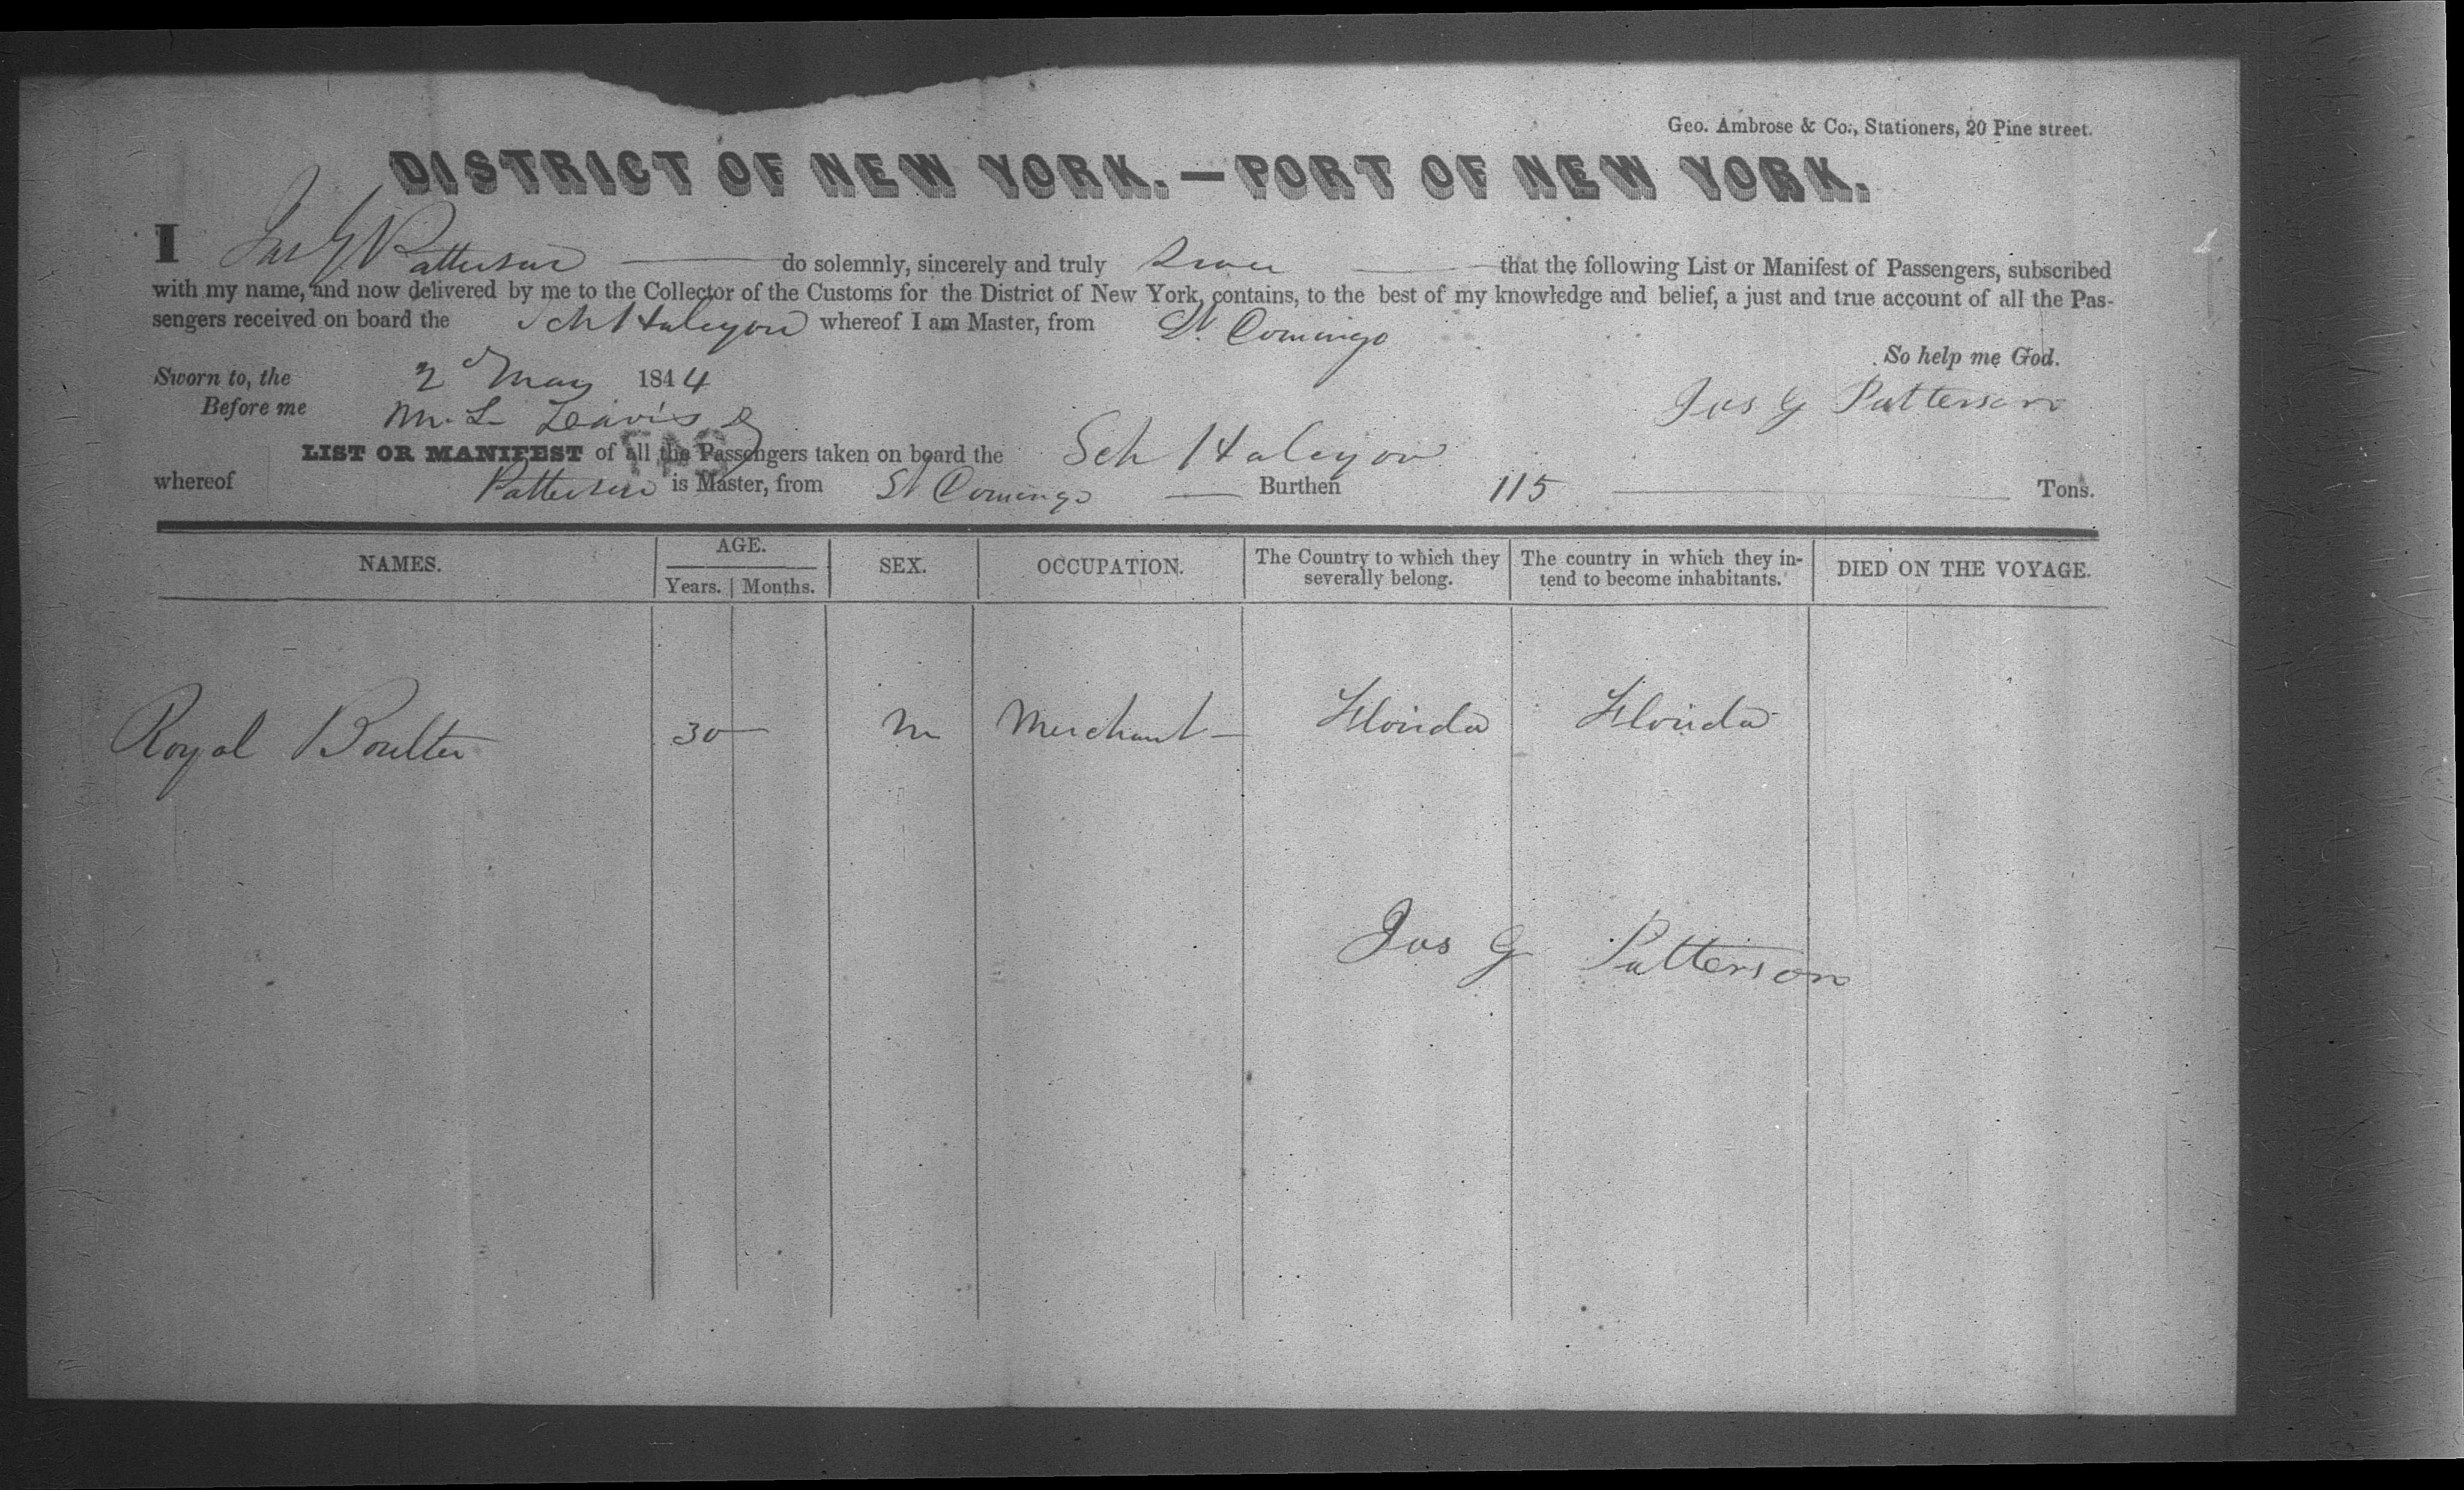 Geo. Ambrose & Co., Stationers, 20 Pine street.
DISTRICT OF NEW YORK.—PORT OF NEW YORK.
I Jas G Patterson do solemnly, sincerely and truly swear that the following List or Manifest of Passengers, subscribed
with my name, and now delivered by me to the Collector of the Customs for the District of New York, contains, to the best of my knowledge and belief, a just and true account of all the Pas-
sengers received on board the Sch Halcyon whereof I am Master, from St. Domingo
So help me God.
Sworn to, the 2d May 1844
Jas G Patterson
Before me M. L. Davis
LIST OR MANIFEST of all the Passengers taken on board the Sch Halcyon
whereof Patterson is Master, from St Domingo Burthen 115 Tons.
NAMES. AGE. Years. Months. SEX. OCCUPATION. The Country to which they severally belong. The country in which they in- tend to become inhabitants. DIED ON THE VOYAGE.
Royal Boulter 30 — M Merchant — Florida Florida
Jas G Patterson